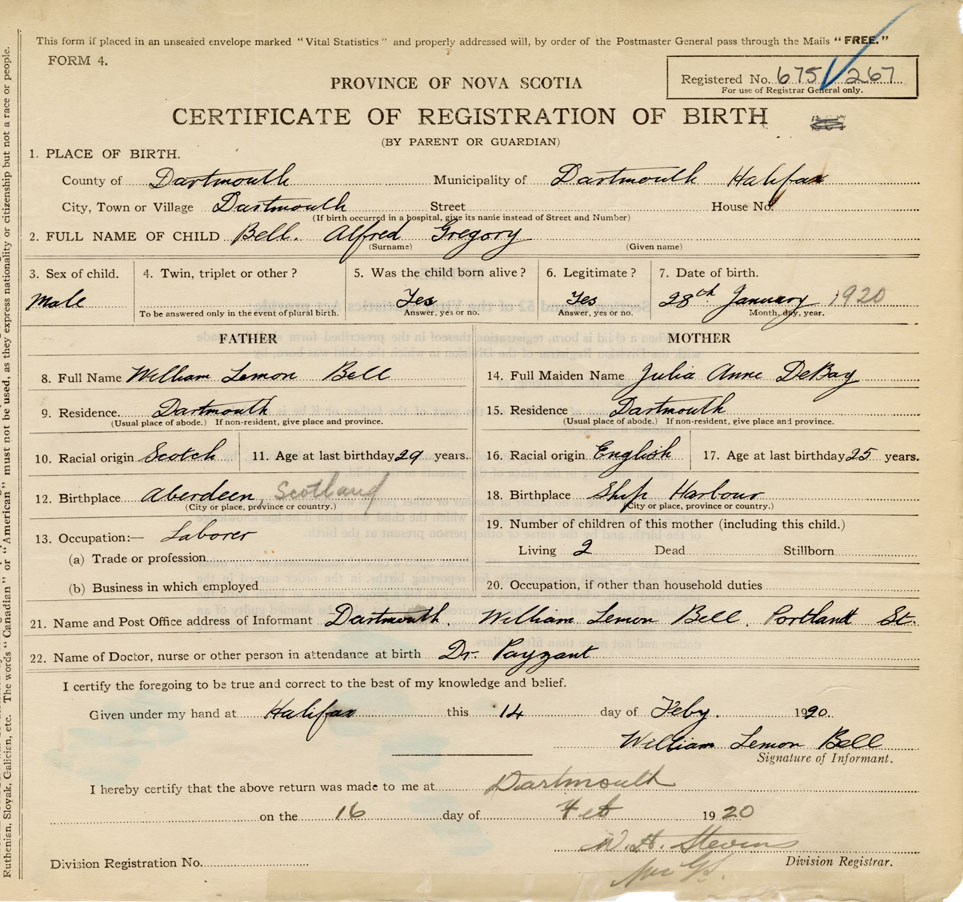 This form if placed in an unsealed envelope marked "Vital Statistics" and properly addressed will, by order of the Postmaster General pass through the Mails "FREE."
FORM 4.
Registered No. 675 267
For use of Registrar General only.
PROVINCE OF NOVA SCOTIA
CERTIFICATE OF REGISTRATION OF BIRTH
(BY PARENT OR GUARDIAN)
1. PLACE OF BIRTH.
County of Dartmouth Municipality of Dartmouth Halifax
City, Town or Village Dartmouth Street House No.
(If birth occurred in a hospital, give its name instead of Street and Number)
2. FULL NAME OF CHILD Bell. Alfred Gregory
(Surname) (Given name)
3. Sex of child. 4. Twin, triplet or other? 5. Was the child born alive? 6. Legitimate? 7. Date of birth.
Male Yes Yes 28th January 1920
To be answered only in the event of plural birth. Answer, yes or no. Answer, yes or no. Month, day, year.
FATHER MOTHER
8. Full Name William Lemon Bell 14. Full Maiden Name Julia Anne DeBay
9. Residence. Dartmouth 15. Residence Dartmouth
(Usual place of abode.) If non-resident, give place and province. (Usual place of abode.) If non-resident, give place and province.
10. Racial origin Scotch 11. Age at last birthday 29 years. 16. Racial origin English 17. Age at last birthday 25 years.
12. Birthplace Aberdeen, Scotland 18. Birthplace Ship Harbour
(City or place, province or country.) (City or place, province or country.)
13. Occupation:— Laborer 19. Number of children of this mother (including this child.)
(a) Trade or profession Living 2 Dead Stillborn
(b) Business in which employed 20. Occupation, if other than household duties
21. Name and Post Office address of Informant Dartmouth. William Lemon Bell. Portland St.
22. Name of Doctor, nurse or other person in attendance at birth Dr. Payzant
I certify the foregoing to be true and correct to the best of my knowledge and belief.
Given under my hand at Halifax this 14 day of Feby. 1920.
William Lemon Bell
Signature of Informant.
I hereby certify that the above return was made to me at Dartmouth
on the 16 day of Feb 1920
W. H. Stevens
Division Registration No. Division Registrar.
Ruthenian, Slovak, Galician, etc. The words "Canadian" or "American" must not be used, as they express nationality or citizenship but not a race or people.